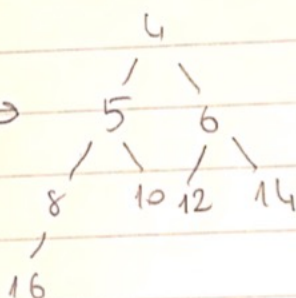 4
⇒ 5 6
8 10 12 14
16